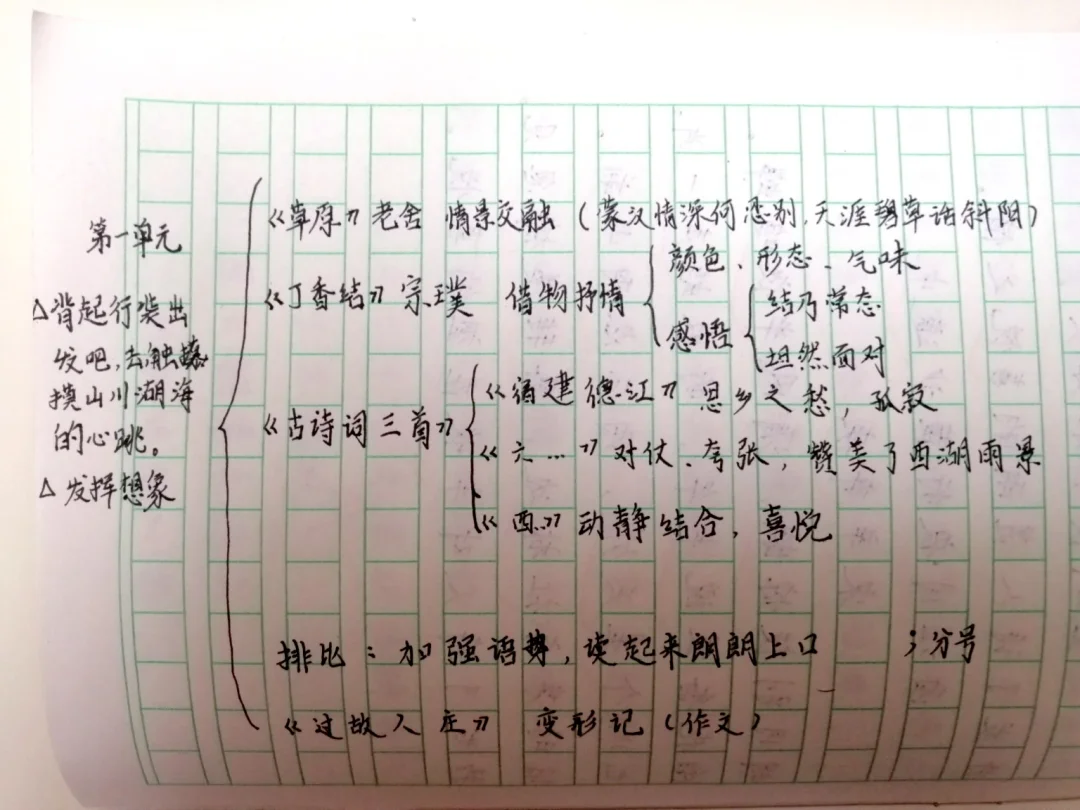 第一单元
△背起行装出
发吧,去触
摸山川湖海
的心跳。
△发挥想象
《草原》老舍 情景交融(蒙汉情深何忍别,天涯碧草话斜阳)
《丁香结》宗璞 借物抒情
颜色、形态、气味
感悟
结乃常态
坦然面对
《古诗词三首》
《宿建德江》思乡之愁,孤寂
《六…》对仗、夸张,赞美了西湖雨景
《西…》动静结合,喜悦
排比:加强语势,读起来朗朗上口 ;分号
《过故人庄》 变形记(作文)